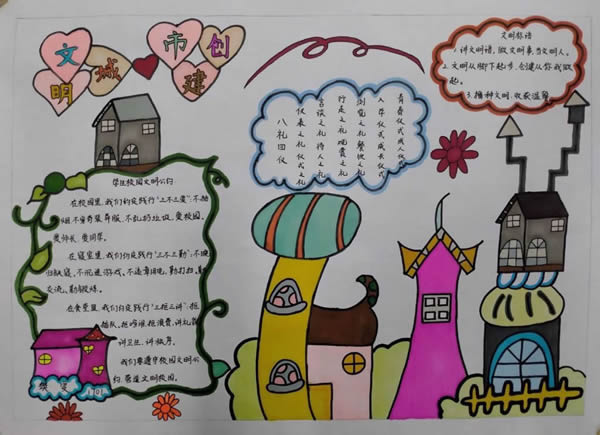 文明城市创建
文明标语
1.讲文明话,做文明事,当文明人。
2.文明从脚下起步,创建从你我做
起。
3.播种文明,收获温馨
八礼四仪
仪表之礼 仪式之礼
言谈之礼 待人之礼
行走之礼 观赏之礼
游览之礼 餐饮之礼
入学仪式 成长仪式
青春仪式 成人仪式
学生校园文明公约
在校园里,我们约定践行"三不三爱":不抽
烟、不穿奇装异服、不乱扔垃圾、爱校园、
爱师长、爱同学。
在寝室里,我们约定践行"三不三勤":不晚
归就寝、不沉迷游戏、不违章用电、勤打扫、勤
交流、勤锻炼。
在食堂里,我们约定践行"三拒三讲":拒
插队、拒喧哗、拒浪费、讲礼貌、
讲卫生、讲秩序。
我们要遵守校园文明公
约,营造文明校园。